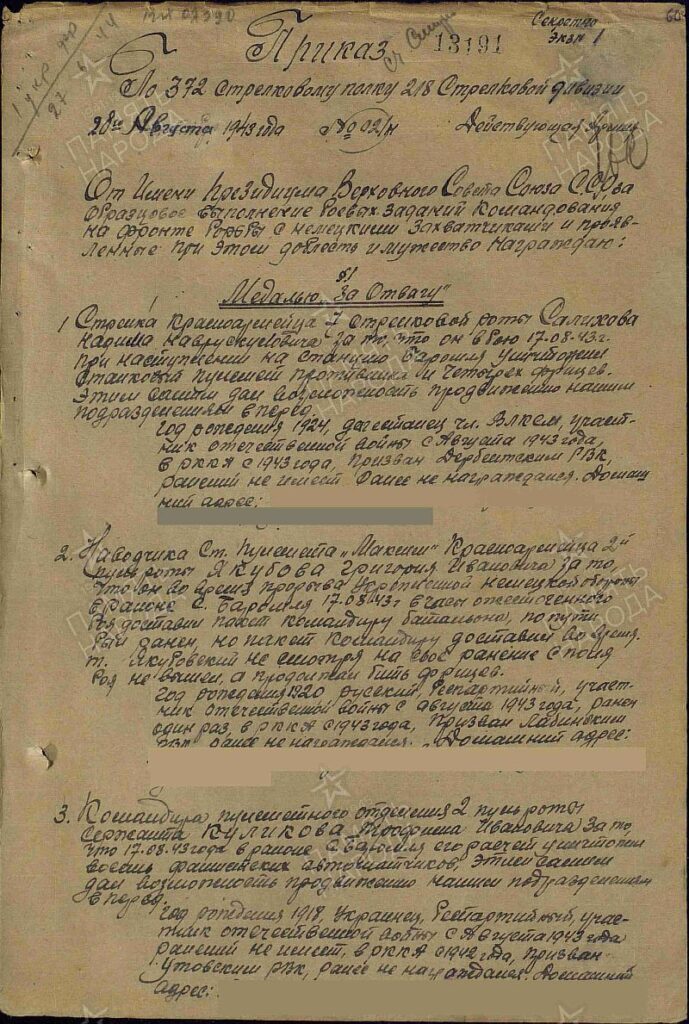 60
Секретно
Экз № 1
1 укр фр
27 / 6 44
Приказ
13191
По 372 Стрелковому полку 218 Стрелковой дивизии
20го Августа 1943 года № 02/н Действующая Армия
От имени Президиума Верховного Совета Союза ССР за
образцовое выполнение боевых заданий Командования
на фронте борьбы с немецкими захватчиками и прояв-
ленные при этом доблесть и мужество награждаю:
§1
Медалью „За Отвагу"
1 Стрелка красноармейца 7 стрелковой роты Салихова
за то, что он в бою 17-08-43 г.
при наступлении на станцию Боромля уничтожил
станковый пулемет противника и четырех фрицев.
Этим самым дал возможность продвижению нашим
подразделениям вперед.
год рождения 1924, дагестанец, чл. ВЛКСМ, участ-
ник отечественной войны с Августа 1943 года,
в РККА с 1943 года, призван Дербентским РВК,
ранений не имеет ранее не награждался. Домаш
ний адрес:
2. Наводчика ст. пулемета „Максим" Красноармейца 2й
пульроты Якубова Григория Ивановича за то,
что он во время прорыва укрепленной немецкой обороны
в районе с. Боромля 17.08.43 г в часы ожесточенного
боя доставил пакет командиру батальона, по пути
был ранен, но пакет командиру доставил во время.
т. Якубовский не смотря на свое ранение с поля
боя не вышел, а продолжал бить фрицев.
год рождения 1920 русский, беспартийный, участ-
ник отечественной войны с августа 1943 года, ранен
один раз, в РККА с 1943 года, призван Лабинским
РВК ранее не награждался. Домашний адрес:
3. Командира пулеметного отделения 2 пульроты
Сержанта Куликова Трофима Ивановича за то,
что 17.08.43 года в районе с Боромля его расчет уничтожил
восемь фашистских автоматчиков, этим самым
дал возможность продвижению нашим подразделениям
вперед.
год рождения 1918, Украинец, беспартийный, учас-
тник отечественной войны с Августа 1943 года
ранений не имеет, в РККА с 1942 года, призван
РВК, ранее не награждался. Домашний
адрес: